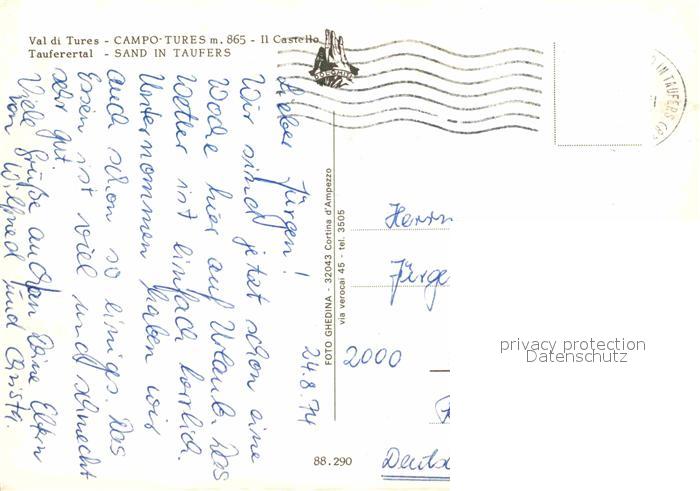 Val di Tures - CAMPO-TURES m. 865 - Il Castello
Tauferertal - SAND IN TAUFERS
DOLOMITI
IN TAUFERS
24.8.74
Lieber Jürgen!
Wir sind jetzt schon eine
Woche hier auf Urlaub. Das
Wetter ist einfach herrlich.
Unternommen haben wir
auch schon so einiges. Das
Essen ist viel und schmeckt
sehr gut.
Viele Grüße auch an Deine Eltern
von Wilfried und Christa.
FOTO GHEDINA - 32043 Cortina d'Ampezzo
via verocai 45 - tel. 3505
Herrn
Jürge
2000
Deuts
88.290
privacy protection
Datenschutz